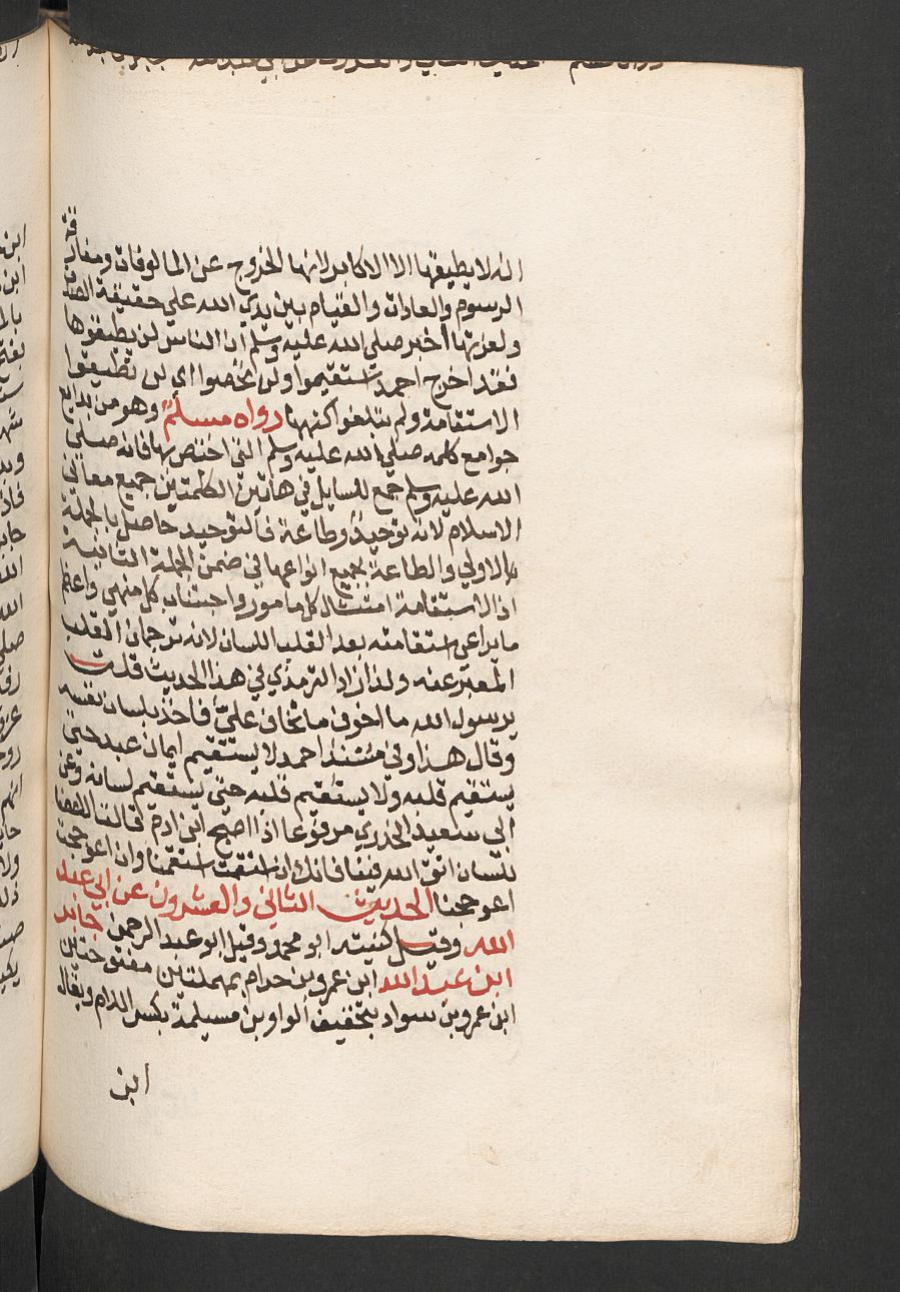 انه لا يطيقها الا الاكابر لانها الخروج عن المالوفات ومفارقة
الرسوم والعادات والقيام بين يدي الله على حقيقة الصدق
ولعزتها اخبر صلى الله عليه وسلم ان الناس لن يطيقوها
فقد اخرج احمد استقيموا ولن تحصوا اي لن تطيقوا
الاستقامة ولم تبلغوا كنهها رواه مسلم وهو من بدايع
جوامع كلمه صلى الله عليه وسلم التي اختص بها فانه صلى
الله عليه وسلم جمع للسايل في هاتين الكلمتين جميع معاني
الاسلام لانه توحيد وطاعة فالتوحيد حاصل بالجملة
الاولى والطاعة بجميع انواعها في ضمن الجملة الثانية
اذ الاستقامة امتثال كل مامور واجتناب كل منهي واعظم
ما يراعى استقامته بعد القلب اللسان لانه ترجمان القلب
المعبر عنه ولذا زاد الترمذي في هذا الحديث قلت
يرسول الله ما اخوف ما تخاف علي فاخذ بلسان نفسه
وقال هذا وفي مسند احمد لا يستقيم ايمان عبد حتى
يستقيم قلبه ولا يستقيم قلبه حتى يستقيم لسانه وعن
ابي سعيد الخدري مرفوعا اذا اصبح ابن ادم قالت الاعضا
للسان اتق الله فينا فانك ان استقمت استقمنا وان اعوججت
اعوججنا الحديث الثاني والعشرون عن ابي عبد
الله وقيل كنيته ابو محمد وقيل ابو عبد الرحمن جابر
ابن عبد الله ابن عمرو بن حرام بمهملتين مفتوحتين
ابن عمرو بن سواد بتخفيف الواو بن مسيلمة بكسر اللام ويقال
ابن